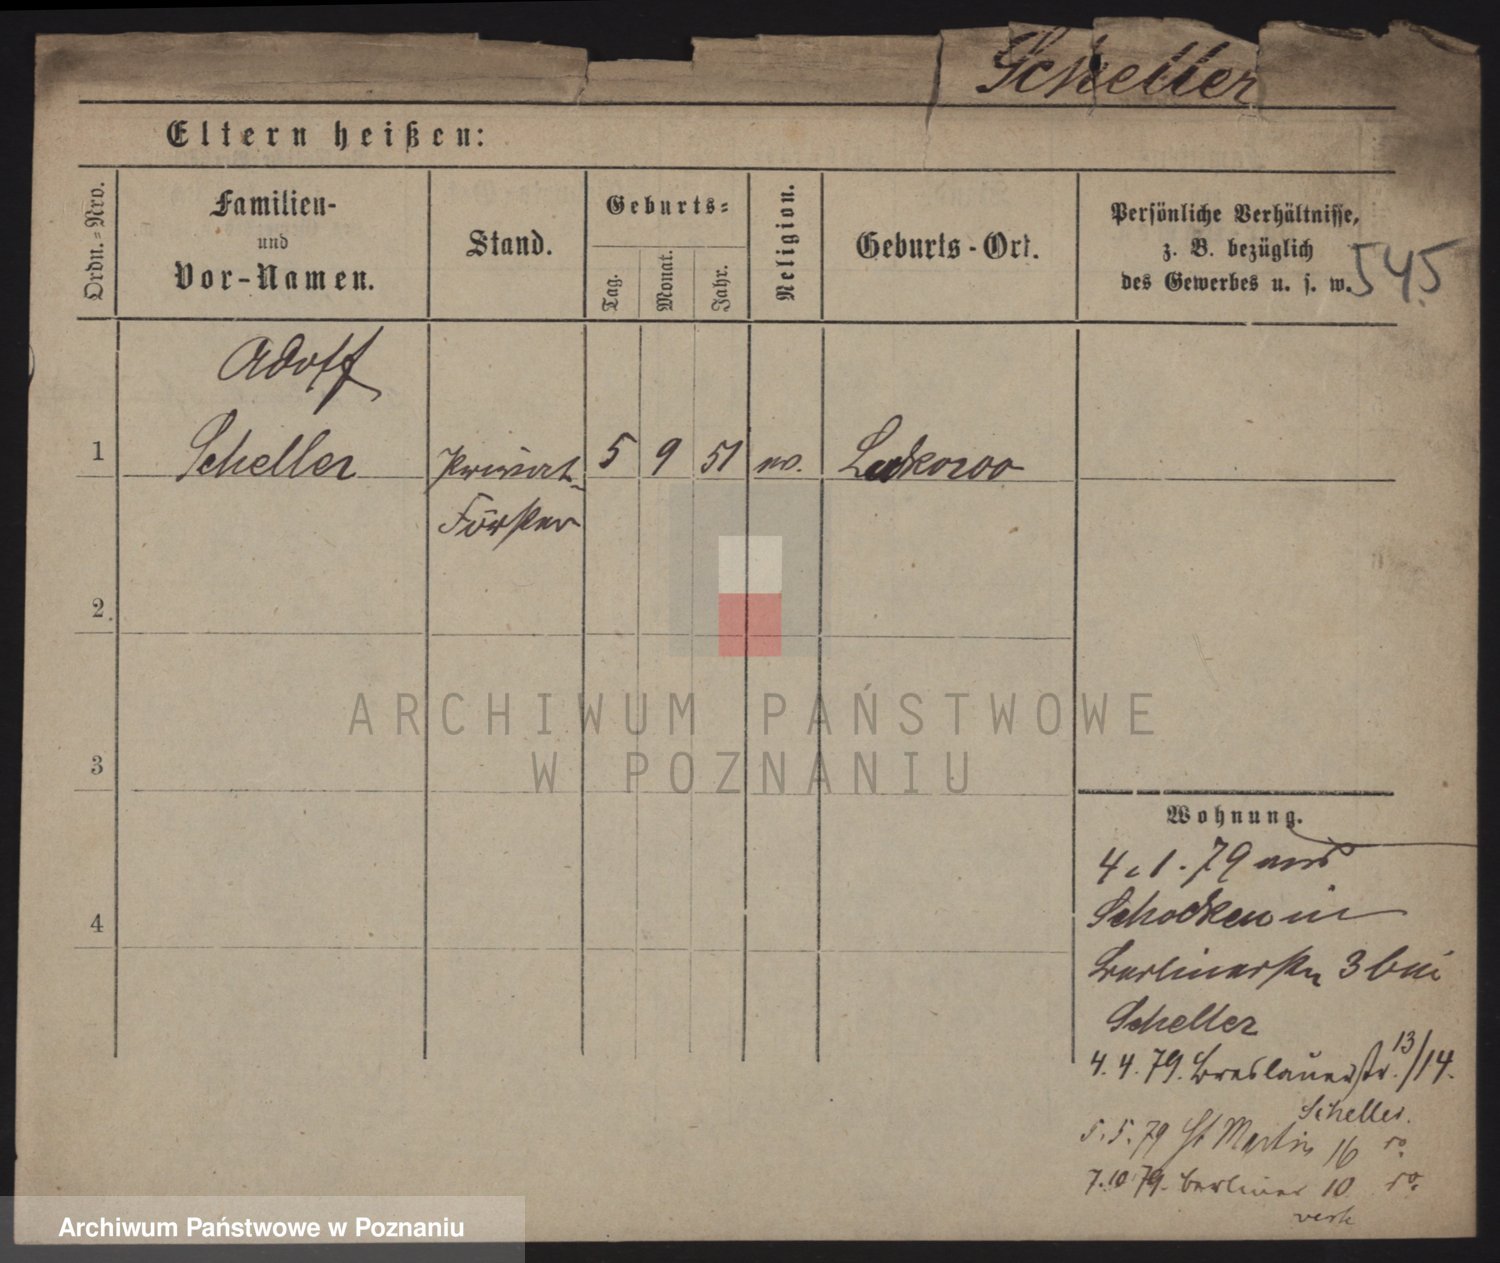 Scheller
Eltern heißen:
Ordn.-Nro.
Familien-
und
Vor-Namen.
Stand.
Geburts-
Tag.
Monat.
Jahr.
Religion.
Geburts-Ort.
Persönliche Verhältnisse,
z. B. bezüglich
des Gewerbes u. s. w.
545
Adolf
1 Scheller Privat- 5 9 51 ev. Lukowo
Förster
2
3
4
ARCHIWUM PAŃSTWOWE
W POZNANIU
Wohnung.
4.1.79 aus
Schocken in
Berlinerstr 3 bei
Scheller
4.4.79. Breslauerstr. 13/14.
Scheller.
5.5.79 St Martin 16
7.10 79. Berliner 10
Archiwum Państwowe w Poznaniu